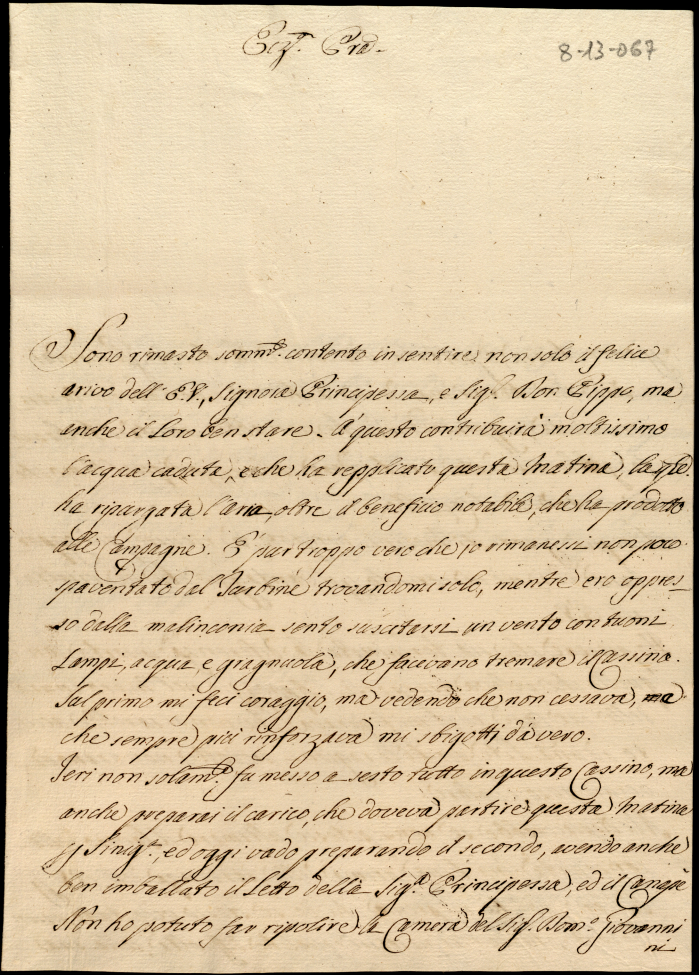 Ecz.ª Prã-
8-13-067
Sono rimasto somm.e contento in sentire non solo il felice
arivo dell' E.V., Signora Principessa, e Sig.r Don Pippo, ma
anche il Loro ben stare. A' questo contribuirà moltissimo
l'acqua caduta, e che ha repplicato questa Matina, la qle
ha ripurgata l'aria, oltre il beneficio notabile, che ha prodotto
alle Campagne. E' pur troppo vero che io rimanessi non poco
spaventato dal Turbine trovandomi solo, mentre ero oppres-
so dalla malinconia sento suscitarsi un vento con tuoni
Lampi, acqua, e gragnuola, che facevano tremare il Cassino.
Sul primo mi feci coraggio, ma vedendo che non cessava, ma
che sempre più rinforzava mi sbigottì da vero.
Ieri non solam.e fu messo a sesto tutto in questo Cassino, ma
anche preparai il carico, che doveva partire questa Matina
p Sinig.a, ed oggi vado preparando il secondo, avendo anche
ben imballato il Letto della Sig.ra Principessa, ed il Canapè
Non ho potuto far ripolire la Camera del Sig.r Dom.o Giovanni
ni